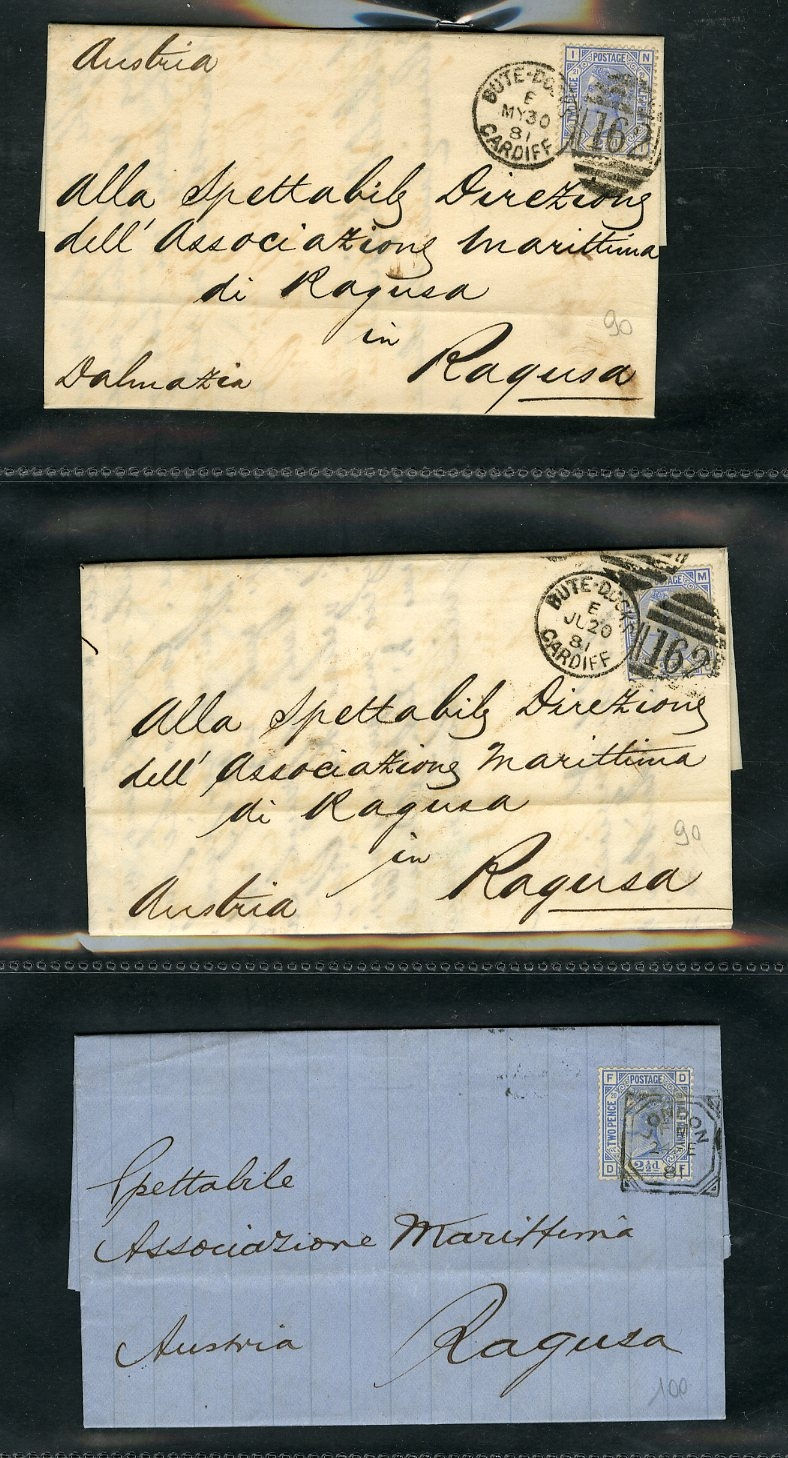 Austria
BUTE-DOCKS
E
MY30
81
CARDIFF
I POSTAGE N
162
Alla Spettabile Direzione
dell' Associazione Marittima
di Ragusa
90
in
Dalmazia Ragusa
BUTE-DOCKS
E
JL20
81
CARDIFF
M
162
Alla Spettabile Direzione
dell' Associazione Marittima
di Ragusa
90
in
Austria Ragusa
F POSTAGE D
TWO PENCE
D 2½d F
LONDON
81
Spettabile
Associazione Marittima
Austria Ragusa
100